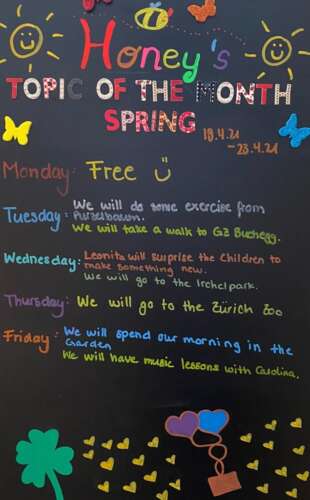 Honey's
TOPIC OF THE MONTH
SPRING
19.4.21
- 23.4.21
Monday: Free
Tuesday: We will do some exercise from
Purzelbaum.
We will take a walk to GZ Buchegg.
Wednesday: Leonita will surprise the Children to
make something new.
We will go to the Irchelpark.
Thursday: We will go to the Zürich Zoo
Friday: We will spend our morning in the
Garden
We will have music lessons with Carolina.